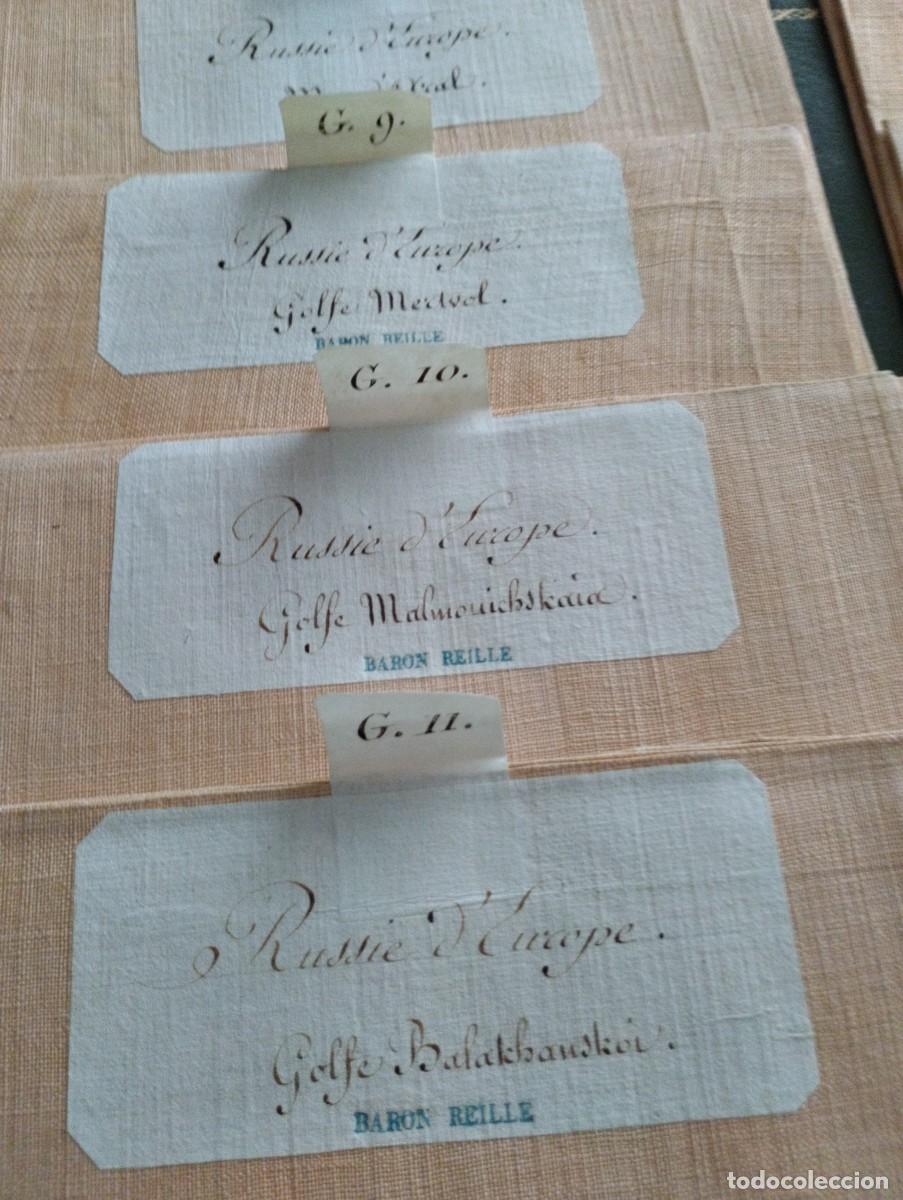 Russie d'Europe.
G. 9.
Russie d'Europe.
Golfe Mertvol.
BARON REILLE
G. 10.
Russie d'Europe.
Golfe Malmouichskaia.
BARON REILLE
G. 11.
Russie d'Europe.
Golfe Balakhanskoi.
BARON REILLE
todocoleccion